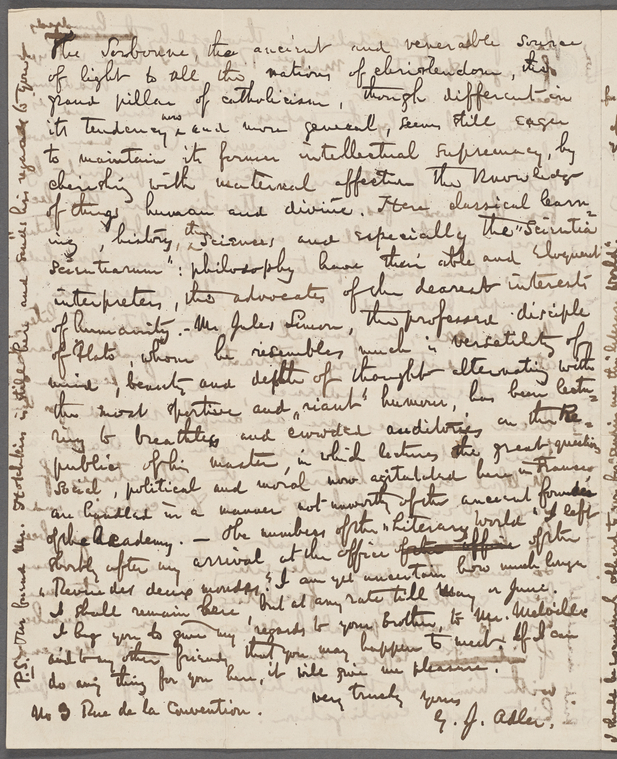 The Sorbonne, the ancient and venerable source
of light to all the nations of christendom, this
grand pillar of catholicism, though different in
its tendency now and more general, seems still eager
to maintain its former intellectual supremacy, by
cherishing with maternal affection the knowledge
of things human and divine. Here classical learn-
ing, history, the Sciences and especially the "Scientia
Scientiarum": philosophy have their able and eloquent
interpreters, the advocates of the dearest interests
of humanity. - Mr. Jules Simon, the professed disciple
of Plato whom he resembles much in versatility of
mind, beauty and depth of thought alternating with
the most sportive and "riant" humour, has been lectu-
ring to breathless and crowded auditories on the Re-
public of his master, in which lectures the great question
social, political and moral now agitated here in France
are handled in a manner not unworthy of the ancient founder
of the Academy. - The numbers of the "Literary World" I left
shortly after my arrival at the office of the
"Revue des deux mondes". I am yet uncertain how much longer
I shall remain here, but at any rate till May or June.
I beg you to give my regards to your brother, to Mr. Melville
and to my other friends that you may happen to meet. If I can
do any thing for you here, it will give me pleasure.
very truly yours
G. J. Adler.
No 3 Rue de la Convention.
P.S. Our friend Mr. Hotchkiss is still here and sends his regards to you